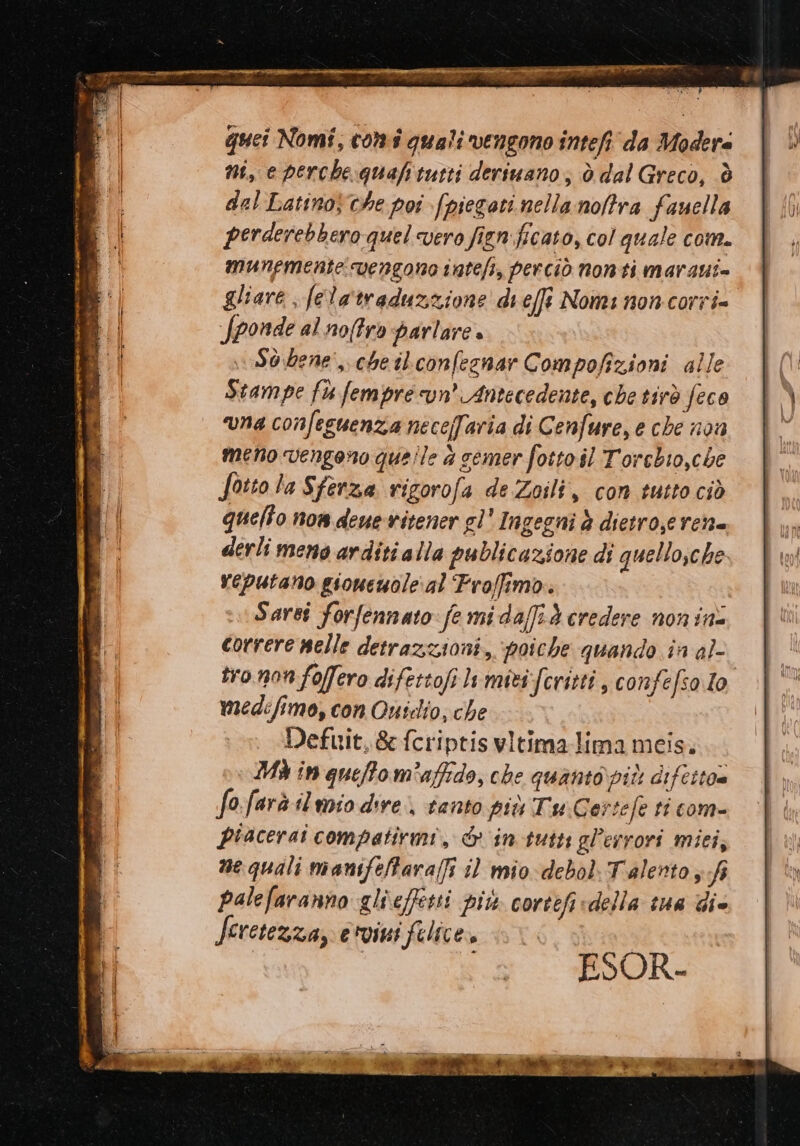 quei Nomi, con i quali vengono intesi da Moder-
ni, e perche quasi tutti deriuano, ò dal Greco, ò
dal Latino, che poi spiegati nella nostra fauella
perderebbero quel vero significato, col quale com-
munemente vengono intesi, perciò non ti maraui-
gliare, se la traduzzione di essi Nomi non corri-
sponde al nostro parlare.
Sò bene, che il consegnar Composizioni alle
Stampe fù sempre vn' Antecedente, che tirò seco
vna conseguenza necessaria di Censure, e che non
meno vengono quelle à gemer sotto il Torchio, che
sotto la Sferza rigorosa de Zoili, con tutto ciò
questo non deue ritener gl' Ingegni à dietro, e ren-
derli meno arditi alla publicazione di quello, che
reputano gioueuole al Prossimo.
Sarei forsennato se mi dassi à credere non in-
correre nelle detrazzioni, poiche quando in al-
tro non fossero difettosi li miei scritti, confesso Io
medesimo, con Ouidio, che
Defuit, & scriptis vltima lima meis.
Mà in questo m'affido, che quanto più difetto-
so sarà il mio dire, tanto più Tu Cortese ti com-
piacerai compatirmi, & in tutti gl'errori miei,
ne quali manifestarassi il mio debol Talento, si
palesaranno gli effetti più cortesi della tua di-
scretezza, e viui felice.
ESOR-